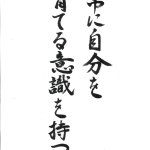 常に自分を
育てる意識を持つ